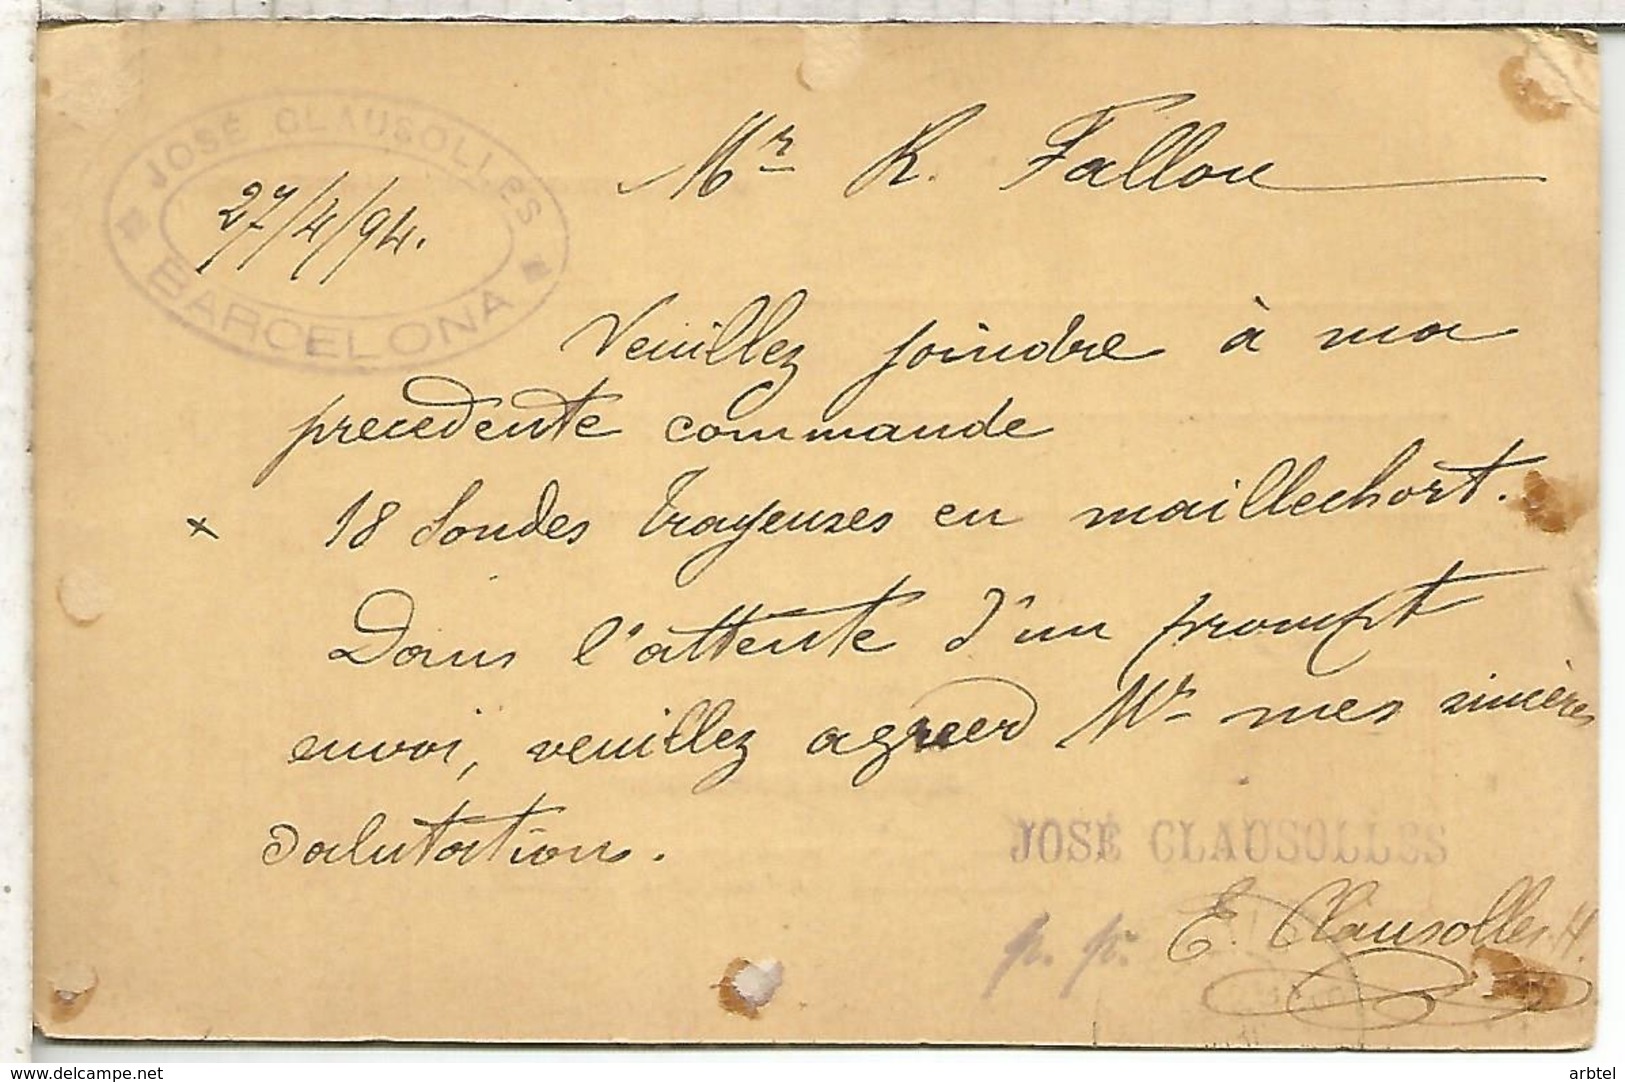 JOSÉ CLAUSOLLES
BARCELONA
27/4/94.
Mr R. Fallou
Veuillez joindre à ma
precedente commande
x 18 Sondes Trayeuses en maillechort.
Dans l'attente d'un prompt
envoi, veuillez agréer Mr mes sincères
salutation.
JOSÉ CLAUSOLLES
p. pr. E. Clausolles H.
www.delcampe.net
arbtel